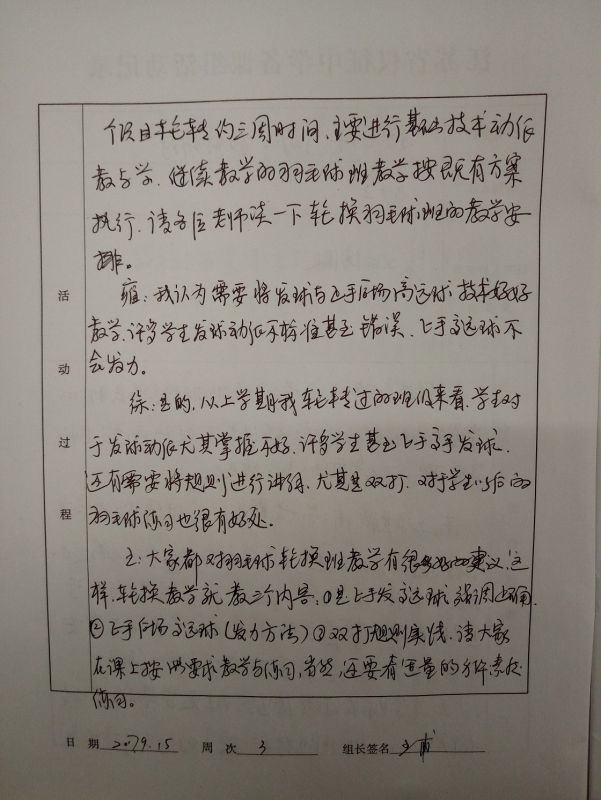 个项目轮转约三周时间,主要进行基础技术动作
教与学,继续教学的羽毛球班教学按既有方案
执行,请各位老师谈一下轮换羽毛球班的教学安
排。
雍:我认为需要将发球与上手后场高远球技术好好
教学,许多学生发球动作不标准甚至错误,上手高远球不
会发力。
徐:是的,从上学期我轮转过的班级来看,学生对
于发球动作尤其掌握不好,许多学生甚至上手发球.
还有需要将规则进行讲解,尤其是双打,对于学生以后的
羽毛球练习也很有好处。
王:大家都对羽毛球轮换班教学有很好的建议,这
样,轮换教学就教三个内容,①是上手发高远球,强调正确.
②上手后场高远球(发力方法)③双打规则实践,请大家
在课上按此要求教学与练习,当然,还要有适量的身体素质
练习。
活
动
过
程
日 期 2017.9.15 周 次 3 组长签名